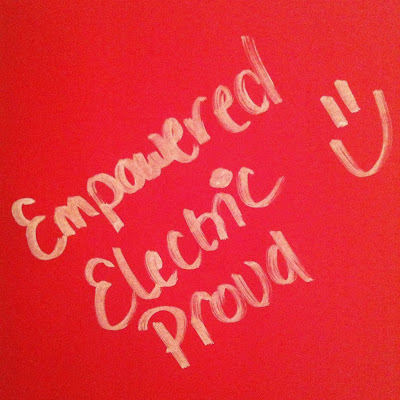 Empowered
Electric
Proud